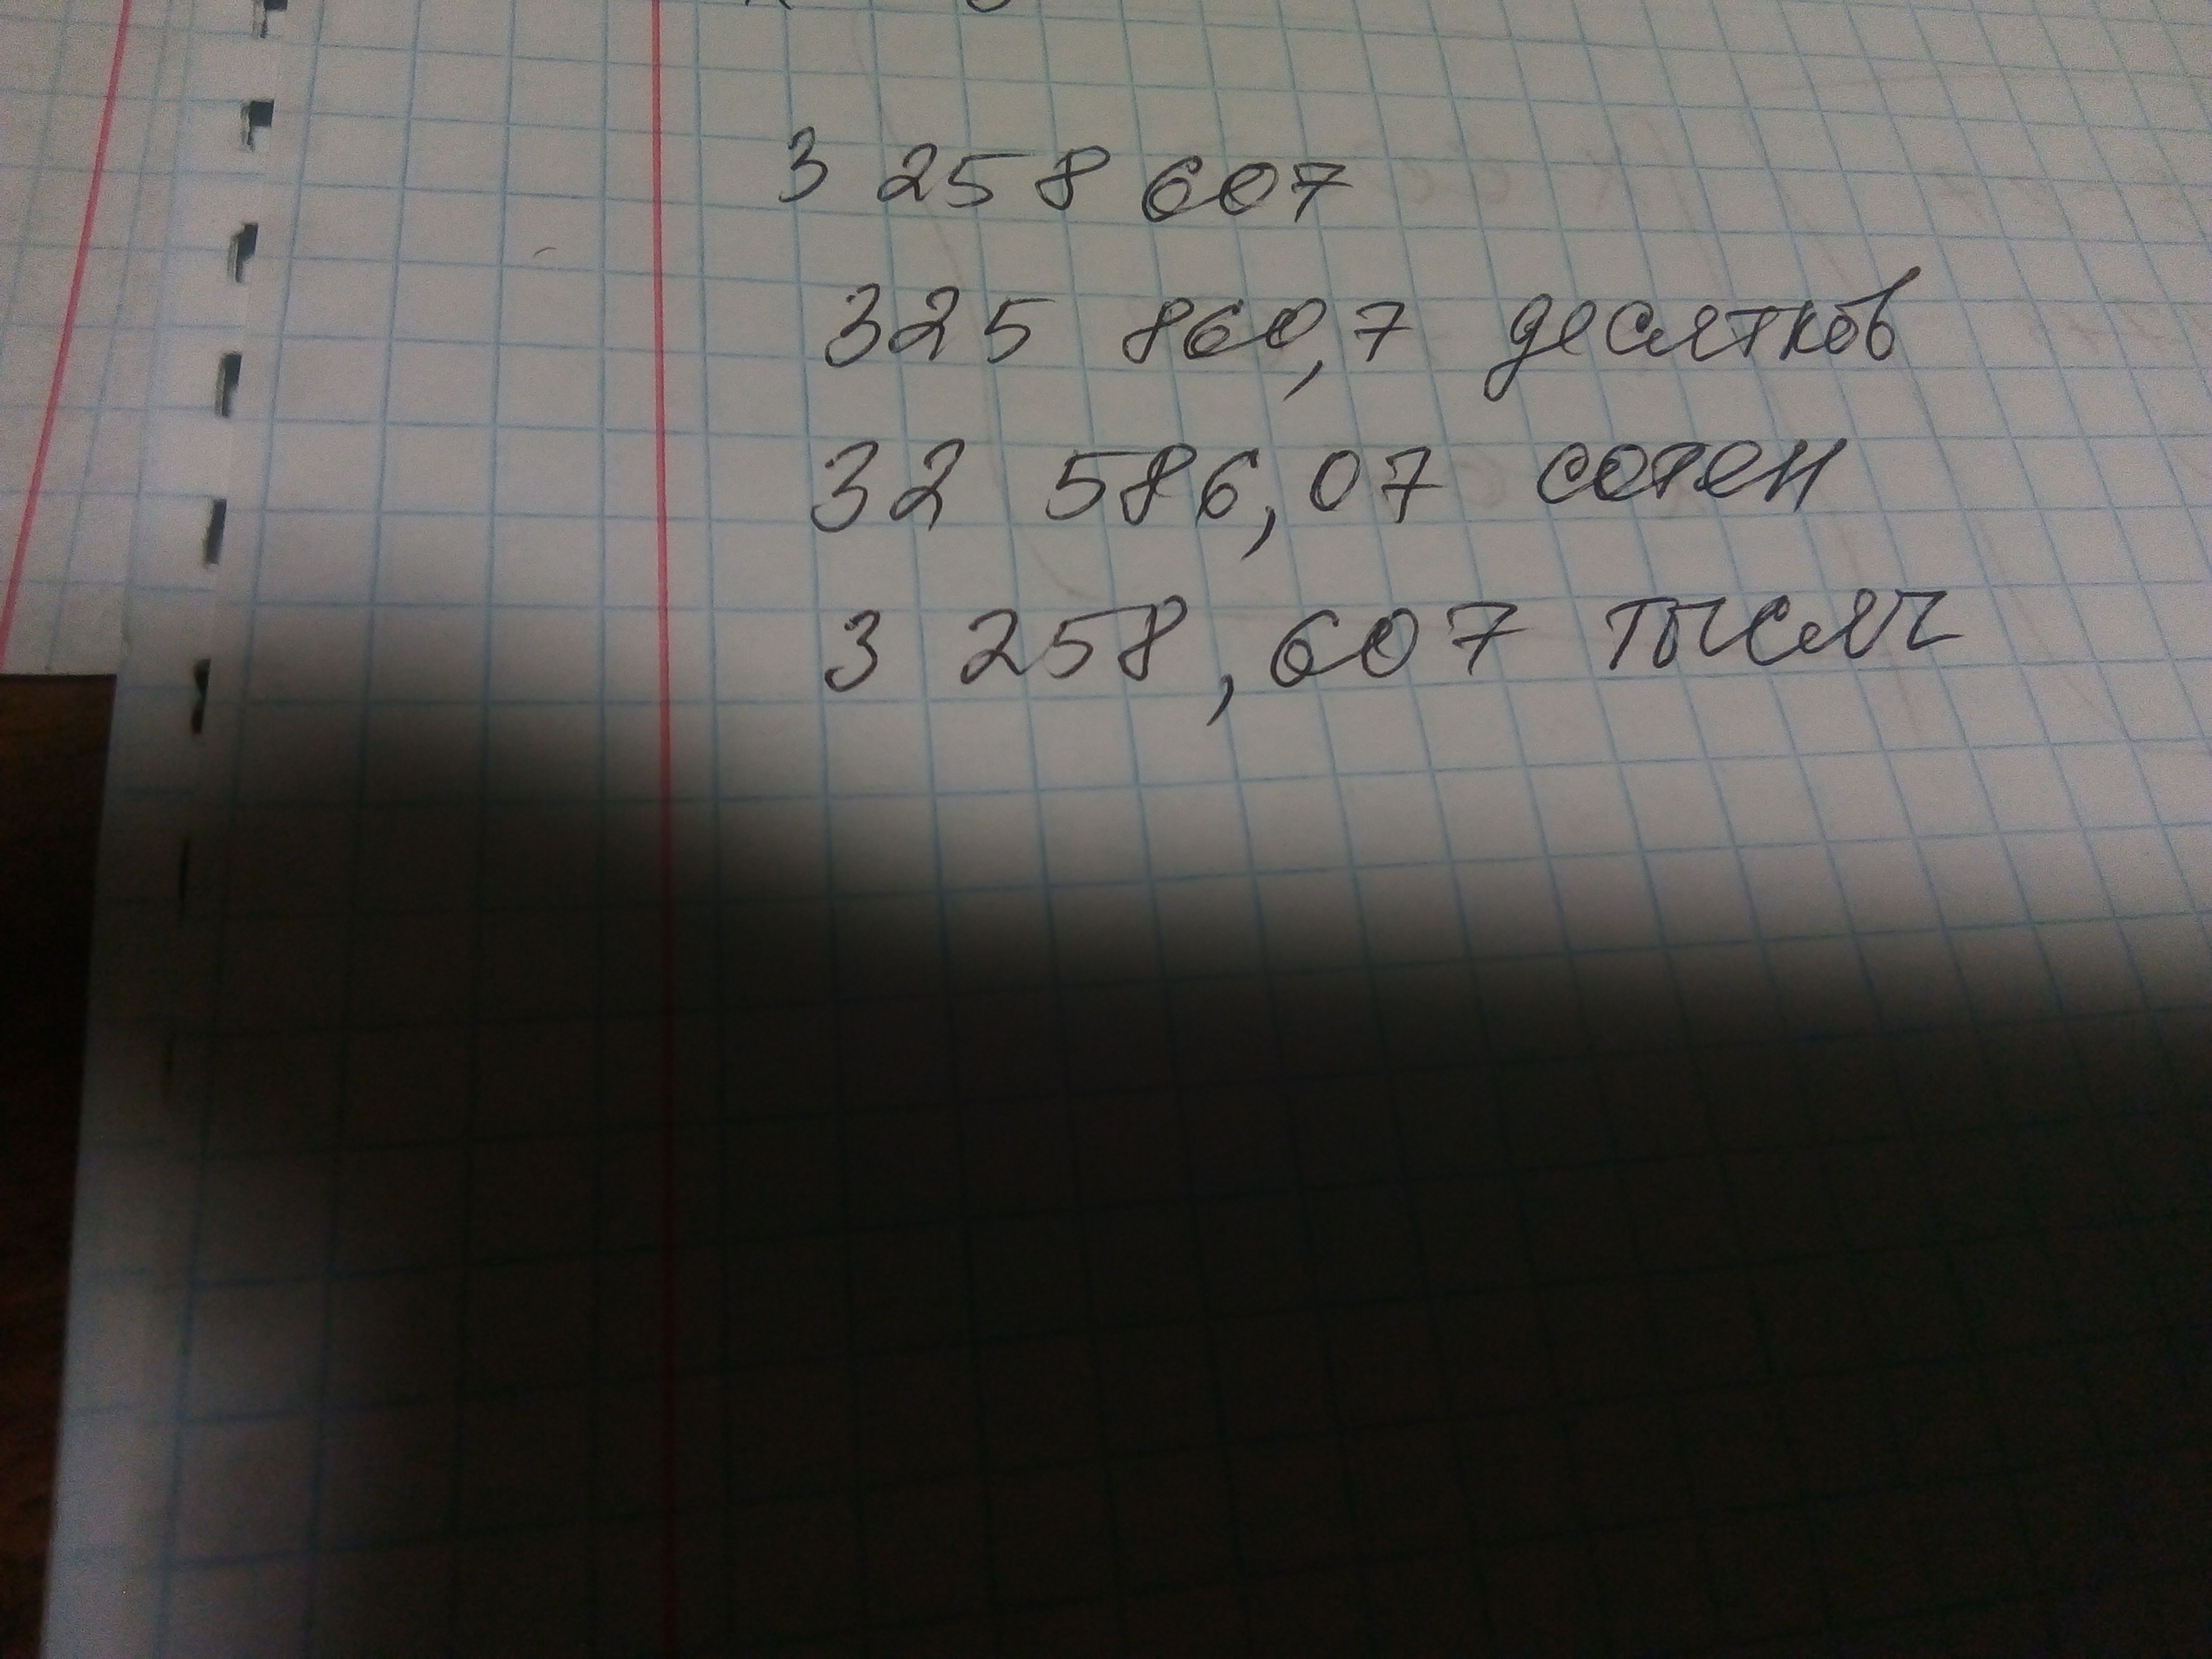 3 258 607
325 860,7 десятков
32 586,07 сотен
3 258,607 тысяч